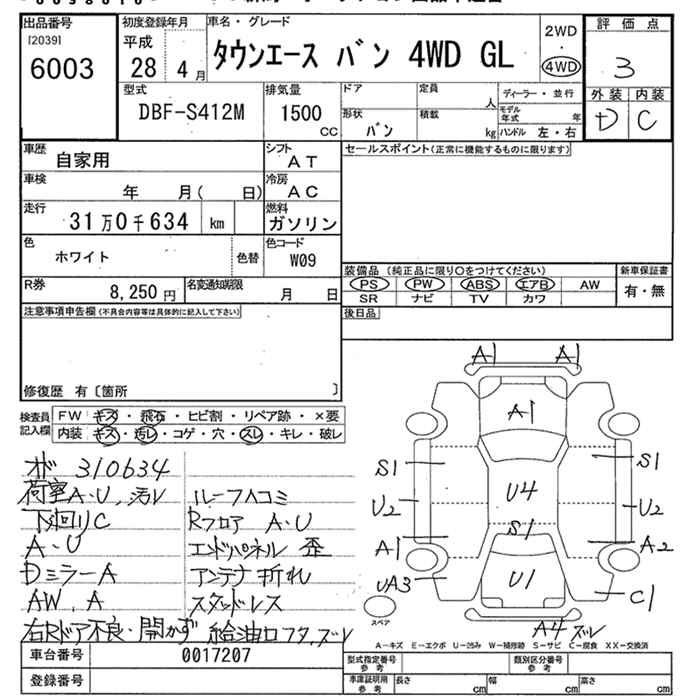 出品番号
[20391
6003
初度登録年月
平成
28年 4月
車名・グレード
タウンエース バン 4WD GL
2WD
・
4WD
評価点
3
外装 内装
D C
型式
DBF-S412M
排気量
1500
cc
ドア
定員
人
形状
バン
積載
kg
ディーラー・並行
モデル年式 年
ハンドル 左・右
車歴
自家用
シフト
AT
セールスポイント(正常に機能するものに限ります)
車検
年 月( 日)
冷房
AC
走行
31万0千634 km
燃料
ガソリン
色
ホワイト
色替
色コード
W09
R券
8,250円
名変通知期限
月 日
装備品 (純正品に限り○をつけてください)
PS PW ABS エアB AW
SR ナビ TV カワ
新車保証書
有・無
後日品
注意事項申告欄(不具合内容等は具体的に記入して下さい)
修復歴 有〔箇所 〕
検査員記入欄
FW キズ・飛石・ヒビ割・リペア跡・×要
内装 キズ・汚レ・コゲ・穴・スレ・キレ・破レ
オド 310634
荷室A・U、汚レ
下回りC
A・U
Dミラー A
AW、A
右Rドア不良・開かず
ルーフ凹コミ
Rフロア A・U
エンドパネル 歪
アンテナ折れ
スタッドレス
給油口フタ、ズレ
A1 A1
A1
S1 S1
U2 U4 U2
S1
A1 A2
UA3 U1 C1
A4 ズレ
スペア
A−キズ E−エクボ U−凹み W−補修跡 S−サビ C−腐食 XX−交換済
車台番号
0017207
登録番号
型式指定番号
参考
類別区分番号
参考
車庫証明用
参考
長さ cm
幅 cm
高さ cm